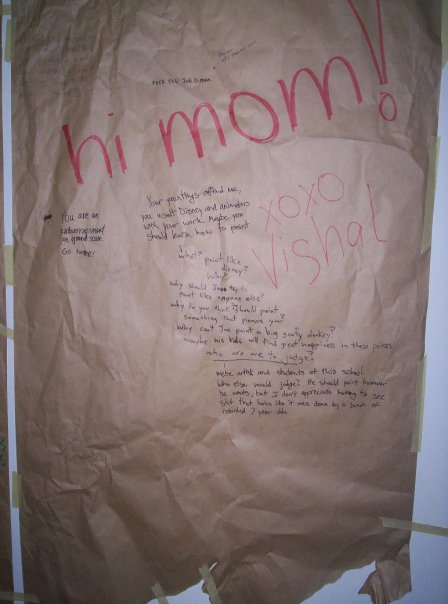 Fuck You Joe
hi mom!
xoxo
Vishal
You are an
embarrassment
on grand scale.
Go home!
Your paintings offend me,
you insult Disney and animators
with your work. Maybe you
should learn how to paint.
what? paint like
disney?
why?
why should Joe try to
paint like anyone else?
why do you think he should paint
something that pleases you?
why can't Joe paint a big goofy donkey?
maybe his kids will find great happiness in these pieces.
who are we to judge?
we're artists and students at this school
who else would judge? He should paint however
he wants, but I don't appreciate having to see
shit that looks like it was done by a bunch of
retarded 7 year olds.